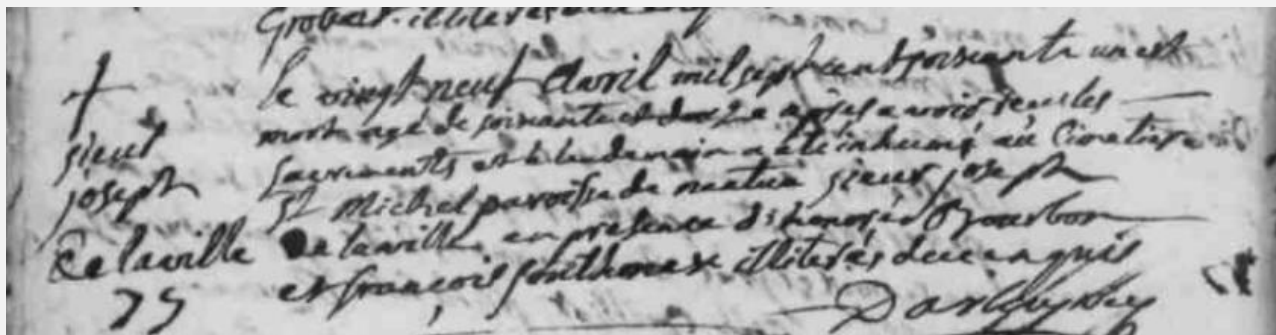 Grobert illiteres
†
sieur
joseph
De laville
75
le vingt neuf Avril mil sept cent soisante un est
mort agé de soisante et douze apres avoir reçu les
sacrements et le lendemain a été inhumé au Cimetiere
St Michel paroisse de nantua sieur joseph
De laville en presence d'honoré Bourbon
et françois sonthonax illiterés de ce enquis